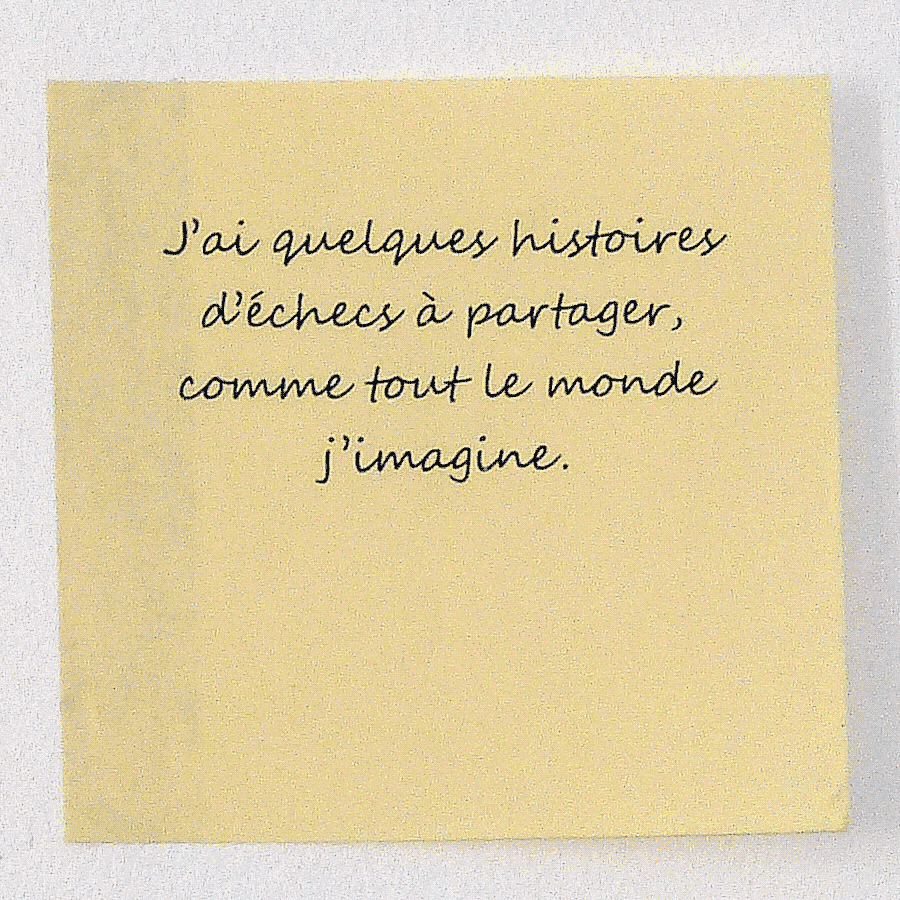 J’ai quelques histoires
d’échecs à partager,
comme tout le monde
j’imagine.